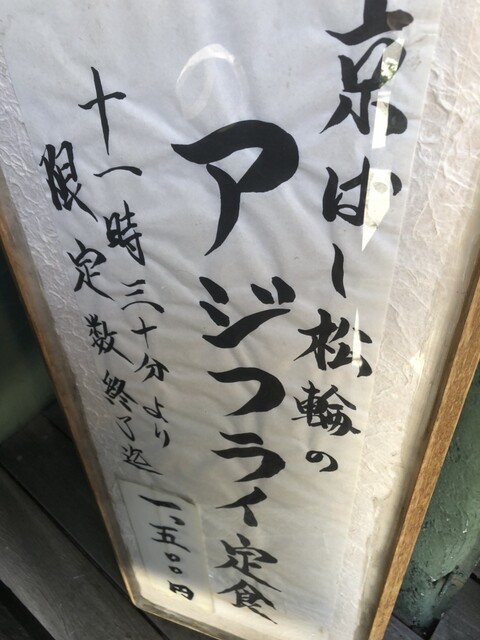 京ばし松輪の
アジフライ定食
十一時三十分より
限定数終了迄
一、五〇〇円